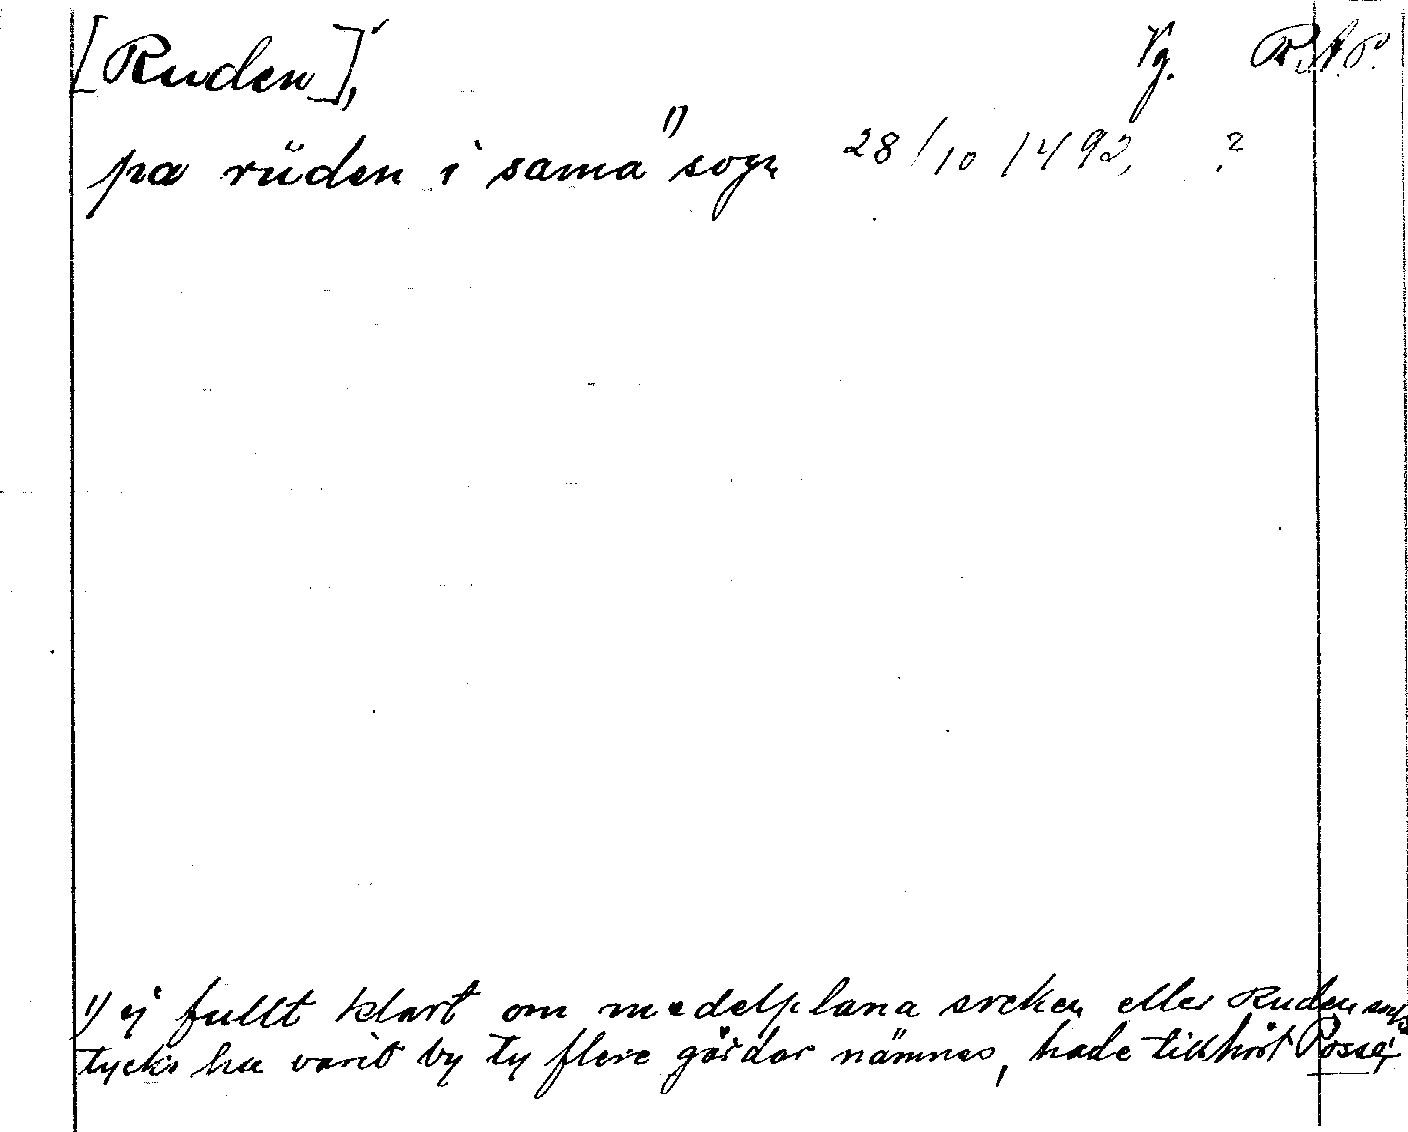 [Ruden], Vg. R.A.P.
pa rüden i sama 1) sogn 28/10 1492, ?
1) ej fullt klart om medelplana socken eller Ruden
tycks ha varit by ty flere gårdar nämnes, hade tillhört Posse